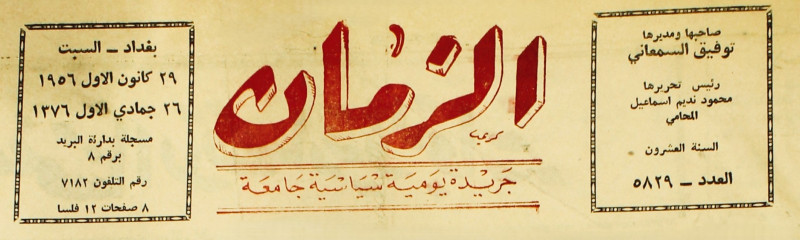 صاحبها ومديرها
توفيق السمعاني
رئيس تحريرها
محمود نديم اسماعيل
المحامي
السنة العشرون
العدد ــ ٥٨٢٩
الزمان
جريدة يومية سياسية جامعة
بغداد ــ السبت
٢٩ كانون الاول ١٩٥٦
٢٦ جمادي الاول ١٣٧٦
مسجلة بدائرة البريد
برقم ٨
رقم التلفون ٧١٨٢
٨ صفحات ١٢ فلسا